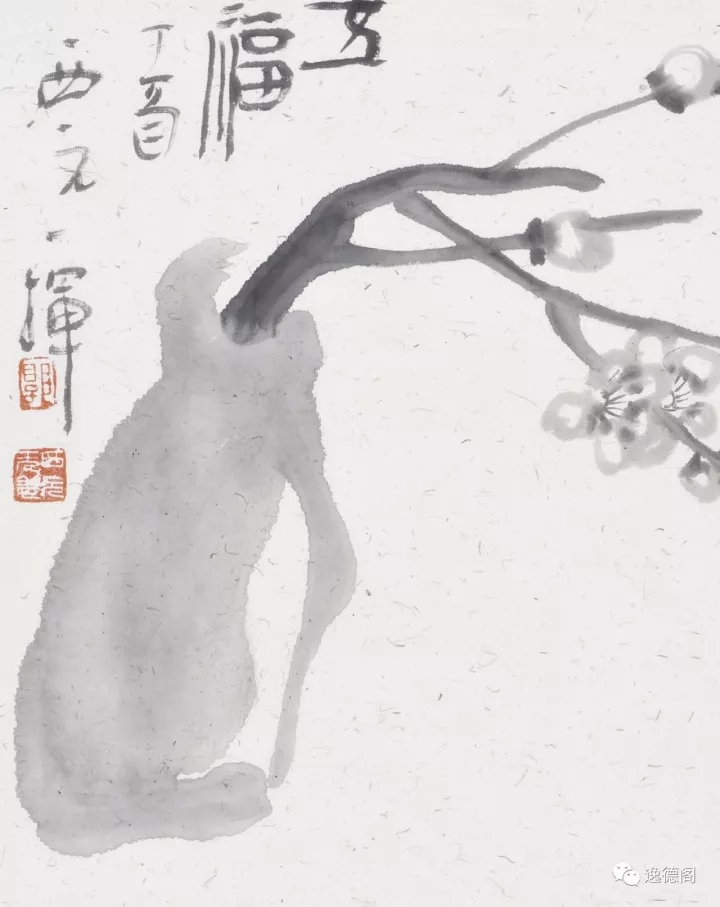 五
福
丁酉
西元揮
逸德阁